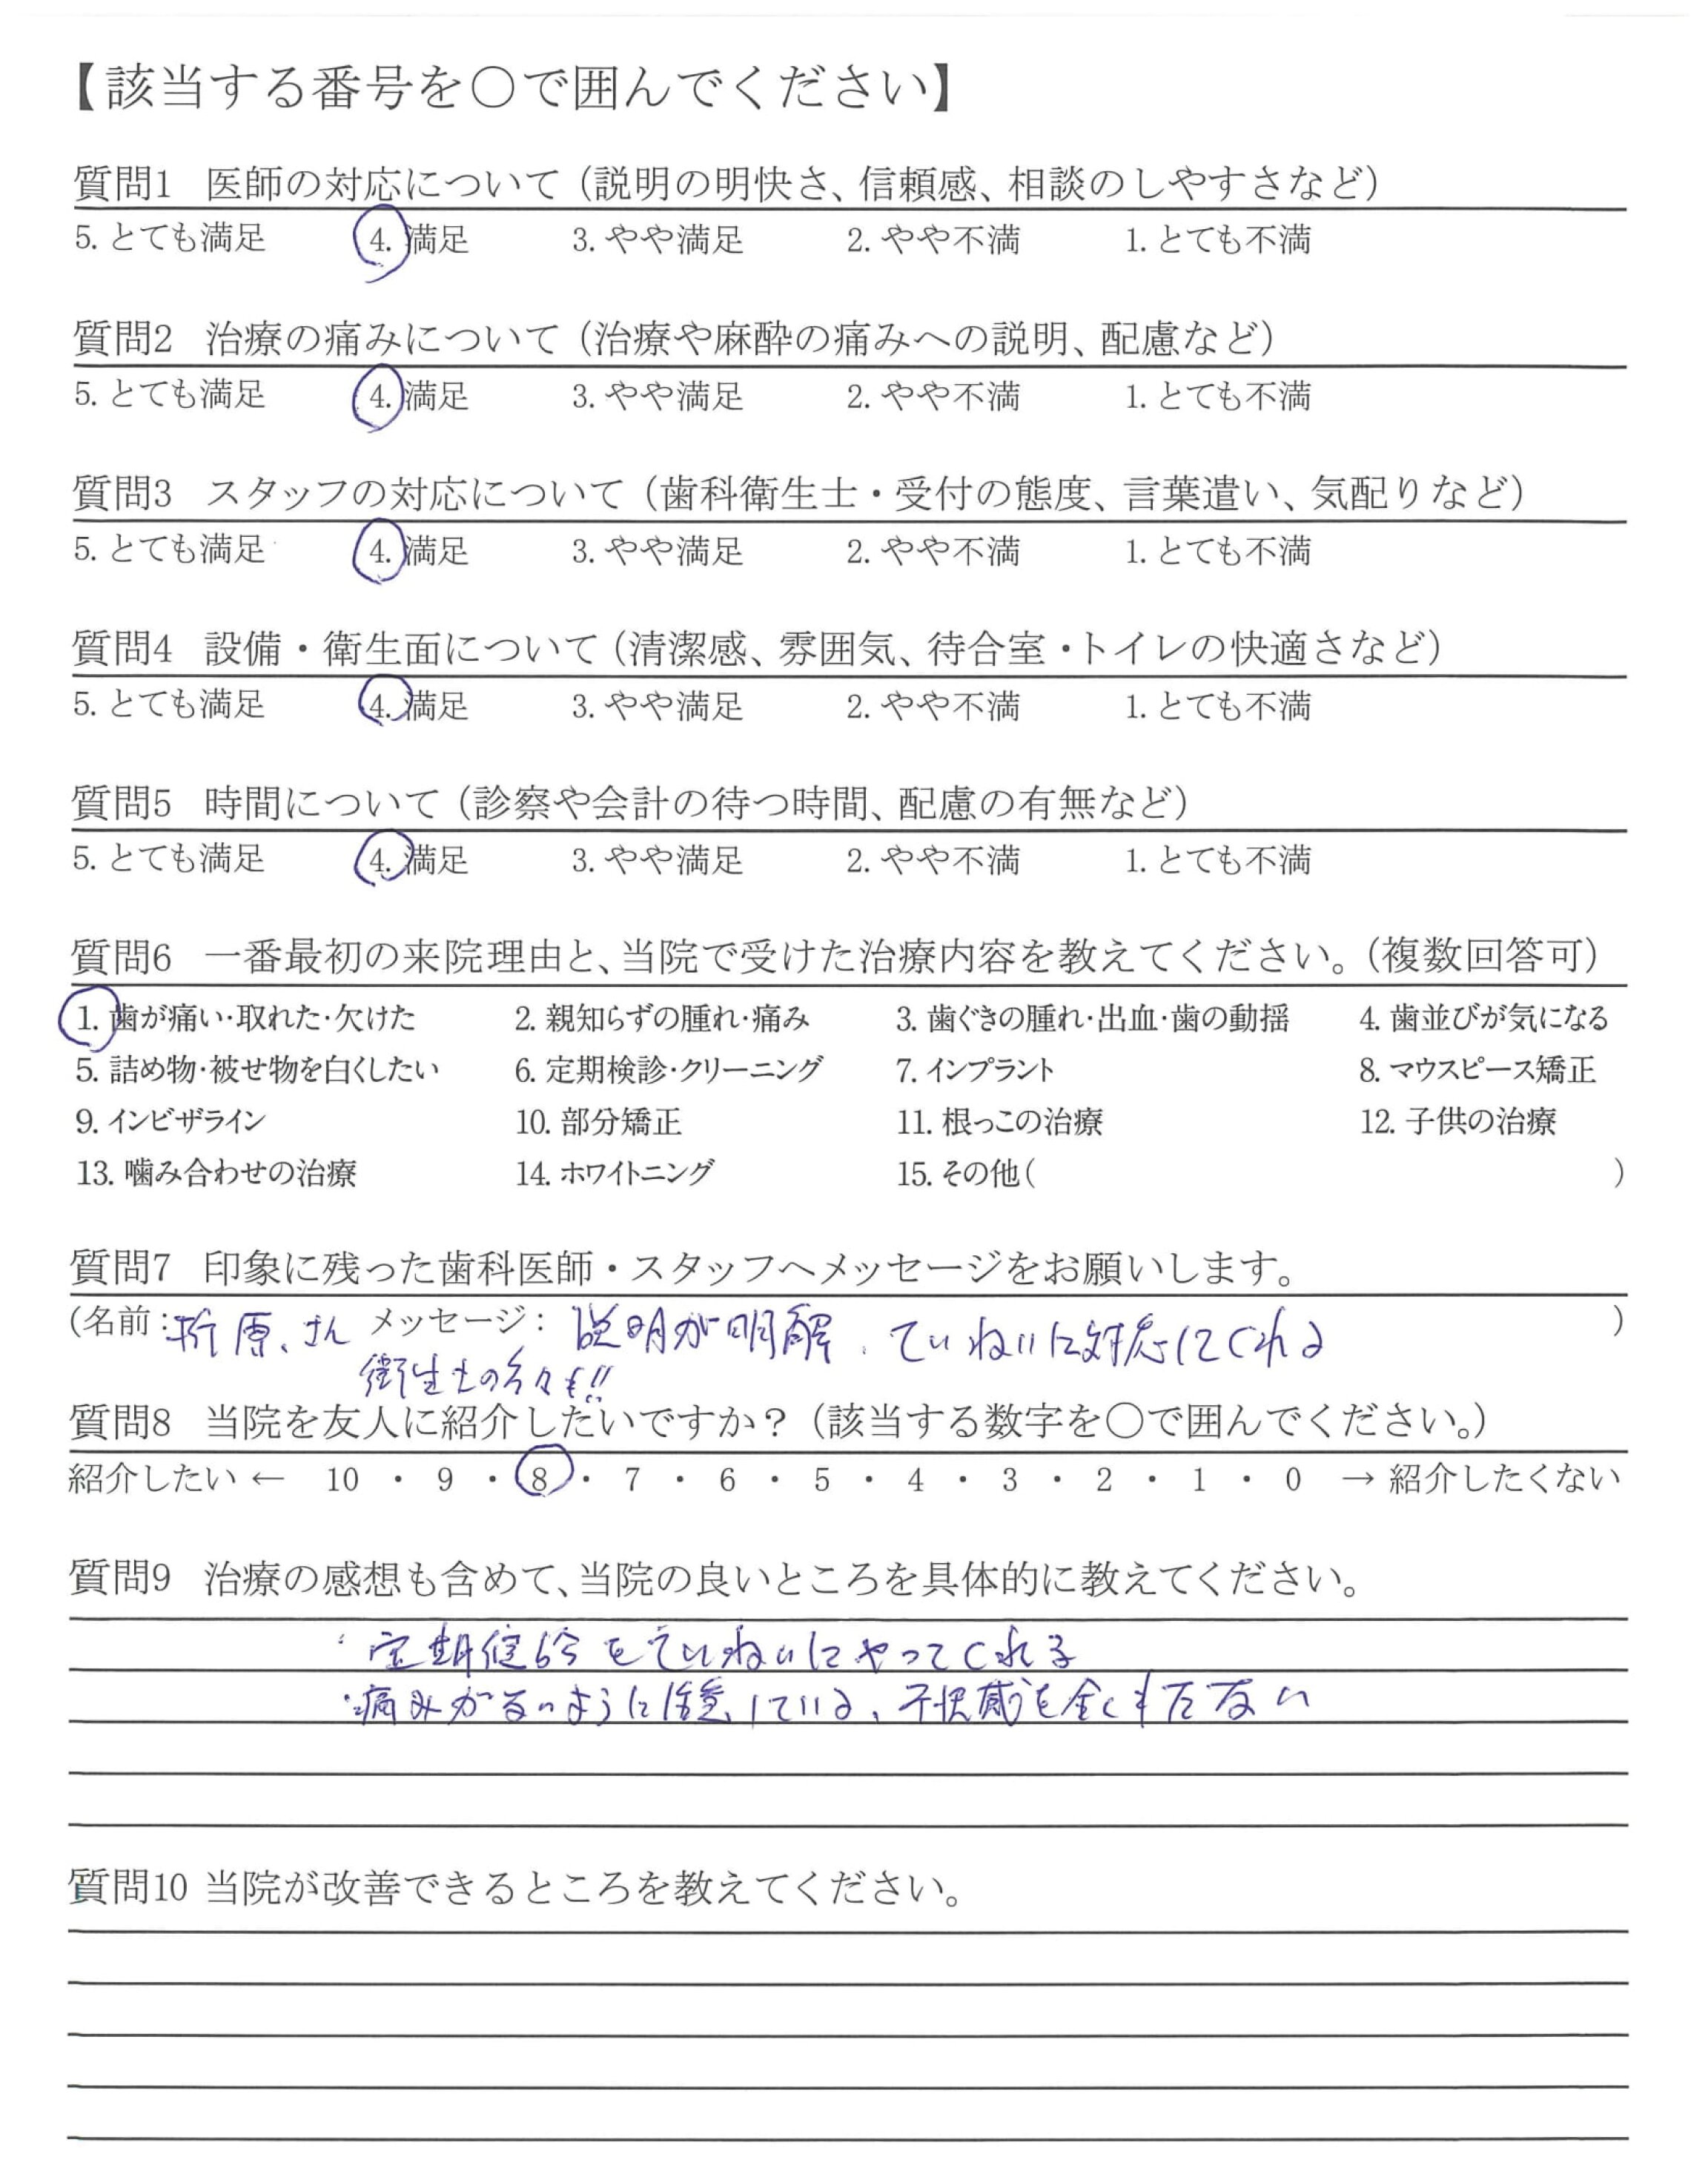 【該当する番号を○で囲んでください】
質問1 医師の対応について（説明の明快さ、信頼感、相談のしやすさなど）
5. とても満足 4. 満足 3. やや満足 2. やや不満 1. とても不満
質問2 治療の痛みについて（治療や麻酔の痛みへの説明、配慮など）
5. とても満足 4. 満足 3. やや満足 2. やや不満 1. とても不満
質問3 スタッフの対応について（歯科衛生士・受付の態度、言葉遣い、気配りなど）
5. とても満足 4. 満足 3. やや満足 2. やや不満 1. とても不満
質問4 設備・衛生面について（清潔感、雰囲気、待合室・トイレの快適さなど）
5. とても満足 4. 満足 3. やや満足 2. やや不満 1. とても不満
質問5 時間について（診察や会計の待つ時間、配慮の有無など）
5. とても満足 4. 満足 3. やや満足 2. やや不満 1. とても不満
質問6 一番最初の来院理由と、当院で受けた治療内容を教えてください。（複数回答可）
1. 歯が痛い・取れた・欠けた 2. 親知らずの腫れ・痛み 3. 歯ぐきの腫れ・出血・歯の動揺 4. 歯並びが気になる
5. 詰め物・被せ物を白くしたい 6. 定期検診・クリーニング 7. インプラント 8. マウスピース矯正
9. インビザライン 10. 部分矯正 11. 根っこの治療 12. 子供の治療
13. 噛み合わせの治療 14. ホワイトニング 15. その他（ ）
質問7 印象に残った歯科医師・スタッフへメッセージをお願いします。
（名前：折原さん メッセージ： 説明が明解、ていねいに対応してくれる ）
衛生士の方々も!!
質問8 当院を友人に紹介したいですか？（該当する数字を○で囲んでください。）
紹介したい ← 10 ・ 9 ・ 8 ・ 7 ・ 6 ・ 5 ・ 4 ・ 3 ・ 2 ・ 1 ・ 0 → 紹介したくない
質問9 治療の感想も含めて、当院の良いところを具体的に教えてください。
・定期健診をていねいにやってくれる
・痛みがないように注意している、不快感を全くもたない
質問10 当院が改善できるところを教えてください。